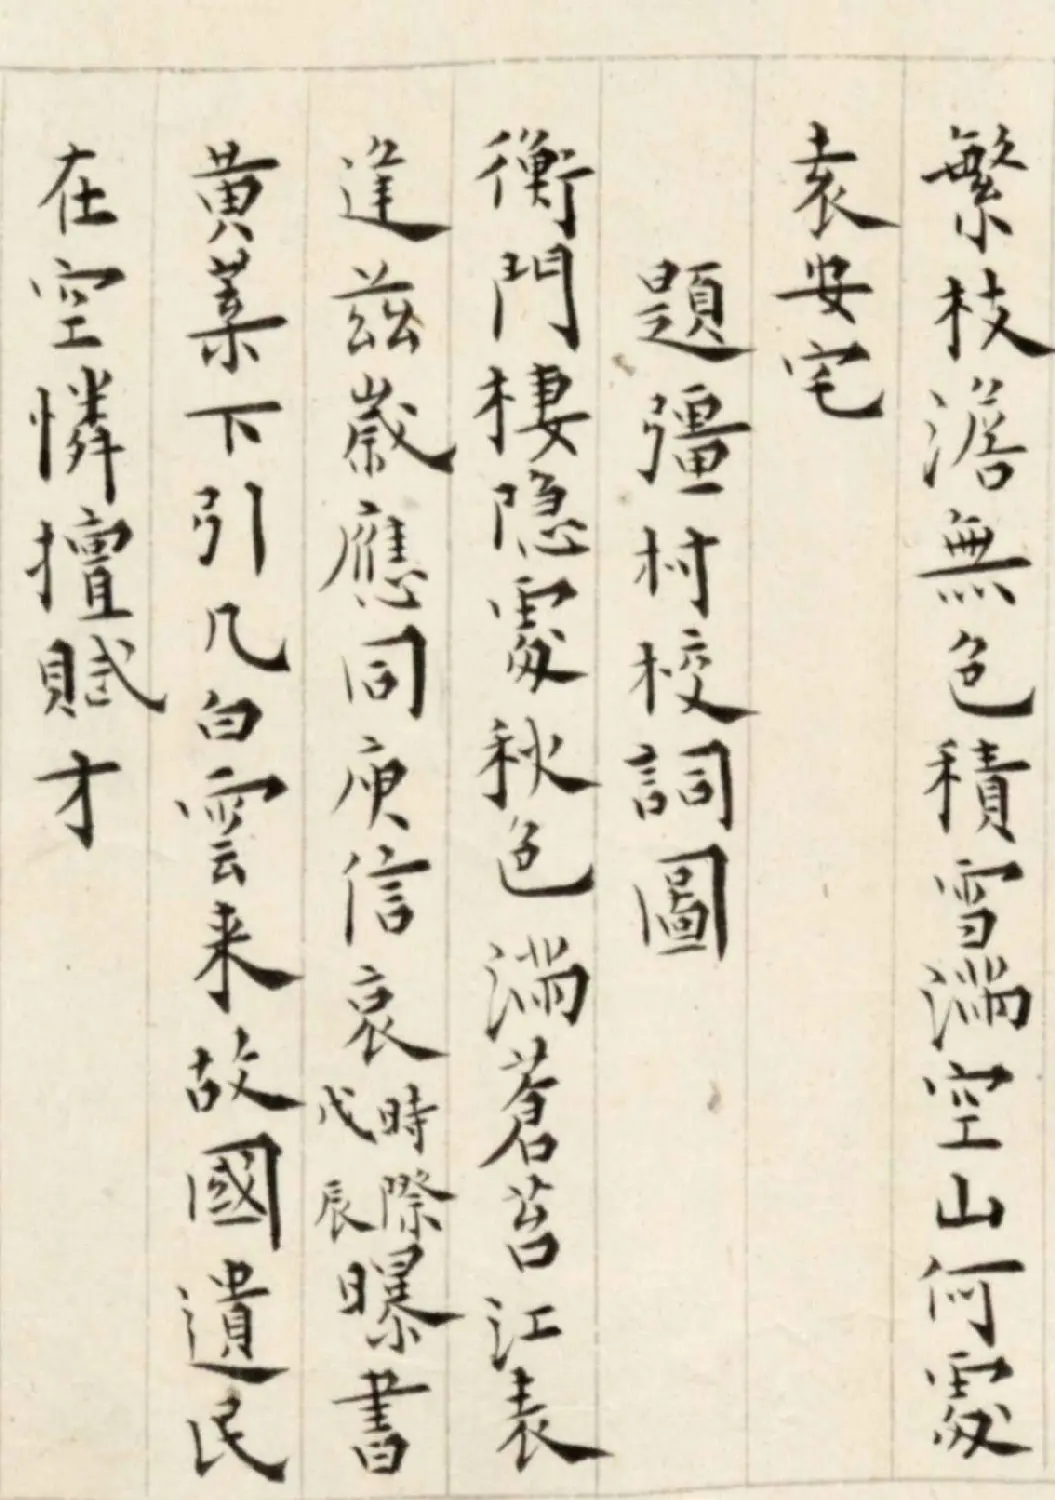 繁枝澹無色積雪滿空山何處
袁安宅
題彊村校詞圖
衡門棲隐處秋色滿蒼苔江表
逢茲歲應同庾信哀時際戊辰曝書
黄葉下引几白雲来故國遺民
在空憐擅賦才